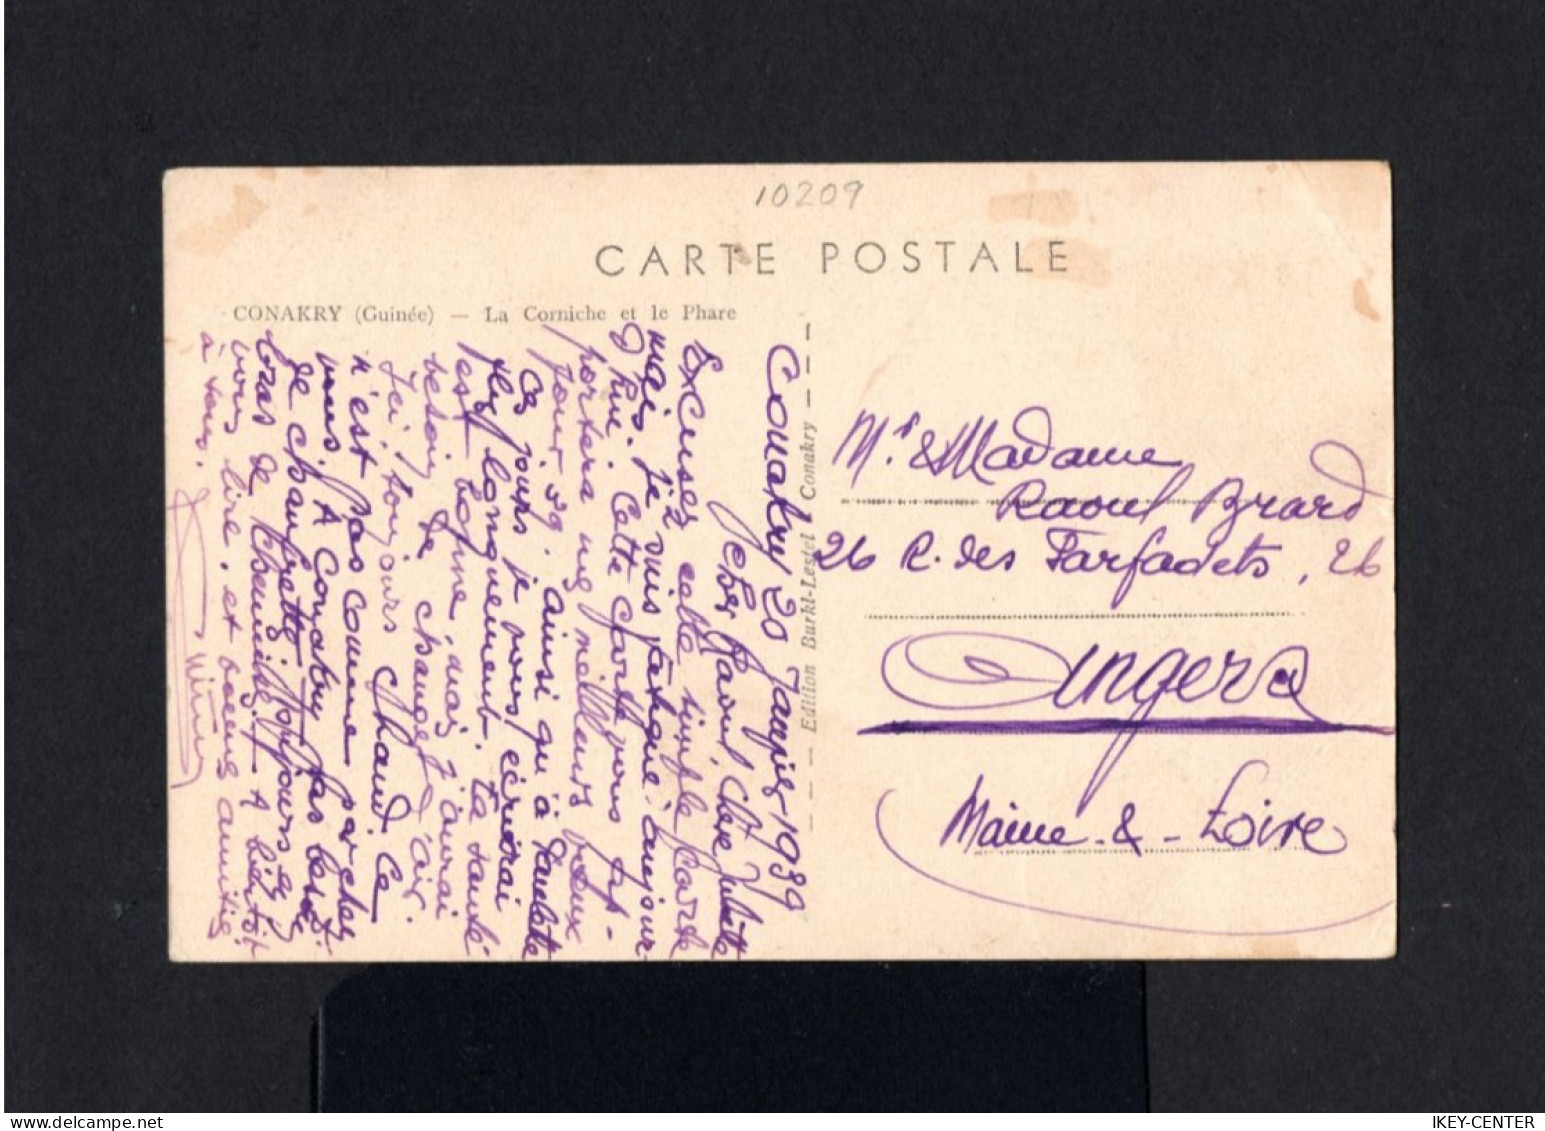 10209
CARTE POSTALE
CONAKRY (Guinée) — La Corniche et le Phare
Edition Burki-Lestel Conakry
Conakry 20 Janvier 1939
Cher Raoul, Chère Juliette
Excusez cette simple Carte
mais je suis fatigué aujour-
d'hui. Cette Carte vous ap-
portera mes meilleurs vœux
pour 39. Ainsi qu'à Paulette
Ces jours je vous écrirai
plus longuement. Ta santé
est bonne, mais j'aurai
besoin de changer d'air.
J'ai toujours chaud. Ce
n'est pas comme par chez
vous. A Conakry pas besoin
de chaufrette toujours en
bras de chemise. A bientôt
vous lire, et bonne amitié
à tous.
Mr. & Madame
Raoul Brard
26 R. des Farfadets, 26
Angers
Maine-&-Loire
delcampe.net
IKEY-CENTER